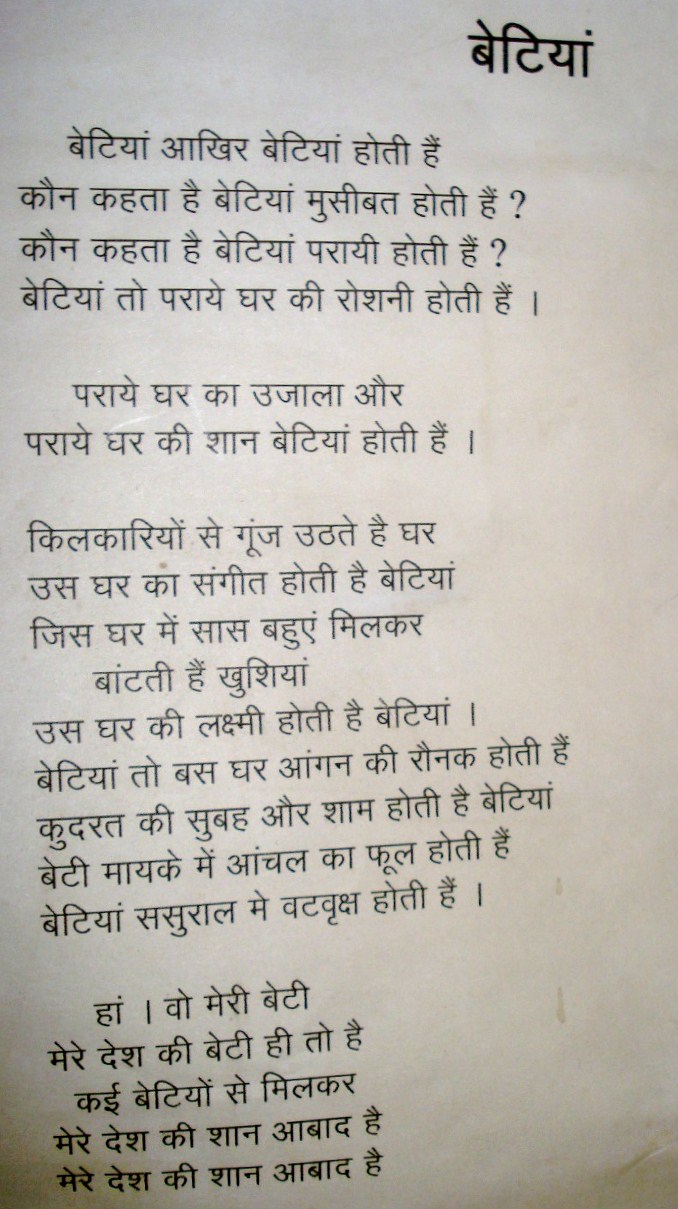 बेटियां
बेटियां आखिर बेटियां होती हैं
कौन कहता है बेटियां मुसीबत होती हैं ?
कौन कहता है बेटियां परायी होती हैं ?
बेटियां तो पराये घर की रोशनी होती हैं ।
पराये घर का उजाला और
पराये घर की शान बेटियां होती हैं ।
किलकारियों से गूंज उठते है घर
उस घर का संगीत होती है बेटियां
जिस घर में सास बहुएं मिलकर
बांटती हैं खुशियां
उस घर की लक्ष्मी होती है बेटियां ।
बेटियां तो बस घर आंगन की रौनक होती हैं
कुदरत की सुबह और शाम होती है बेटियां
बेटी मायके में आंचल का फूल होती हैं
बेटियां ससुराल मे वटवृक्ष होती हैं ।
हां । वो मेरी बेटी
मेरे देश की बेटी ही तो है
कई बेटियों से मिलकर
मेरे देश की शान आबाद है
मेरे देश की शान आबाद है